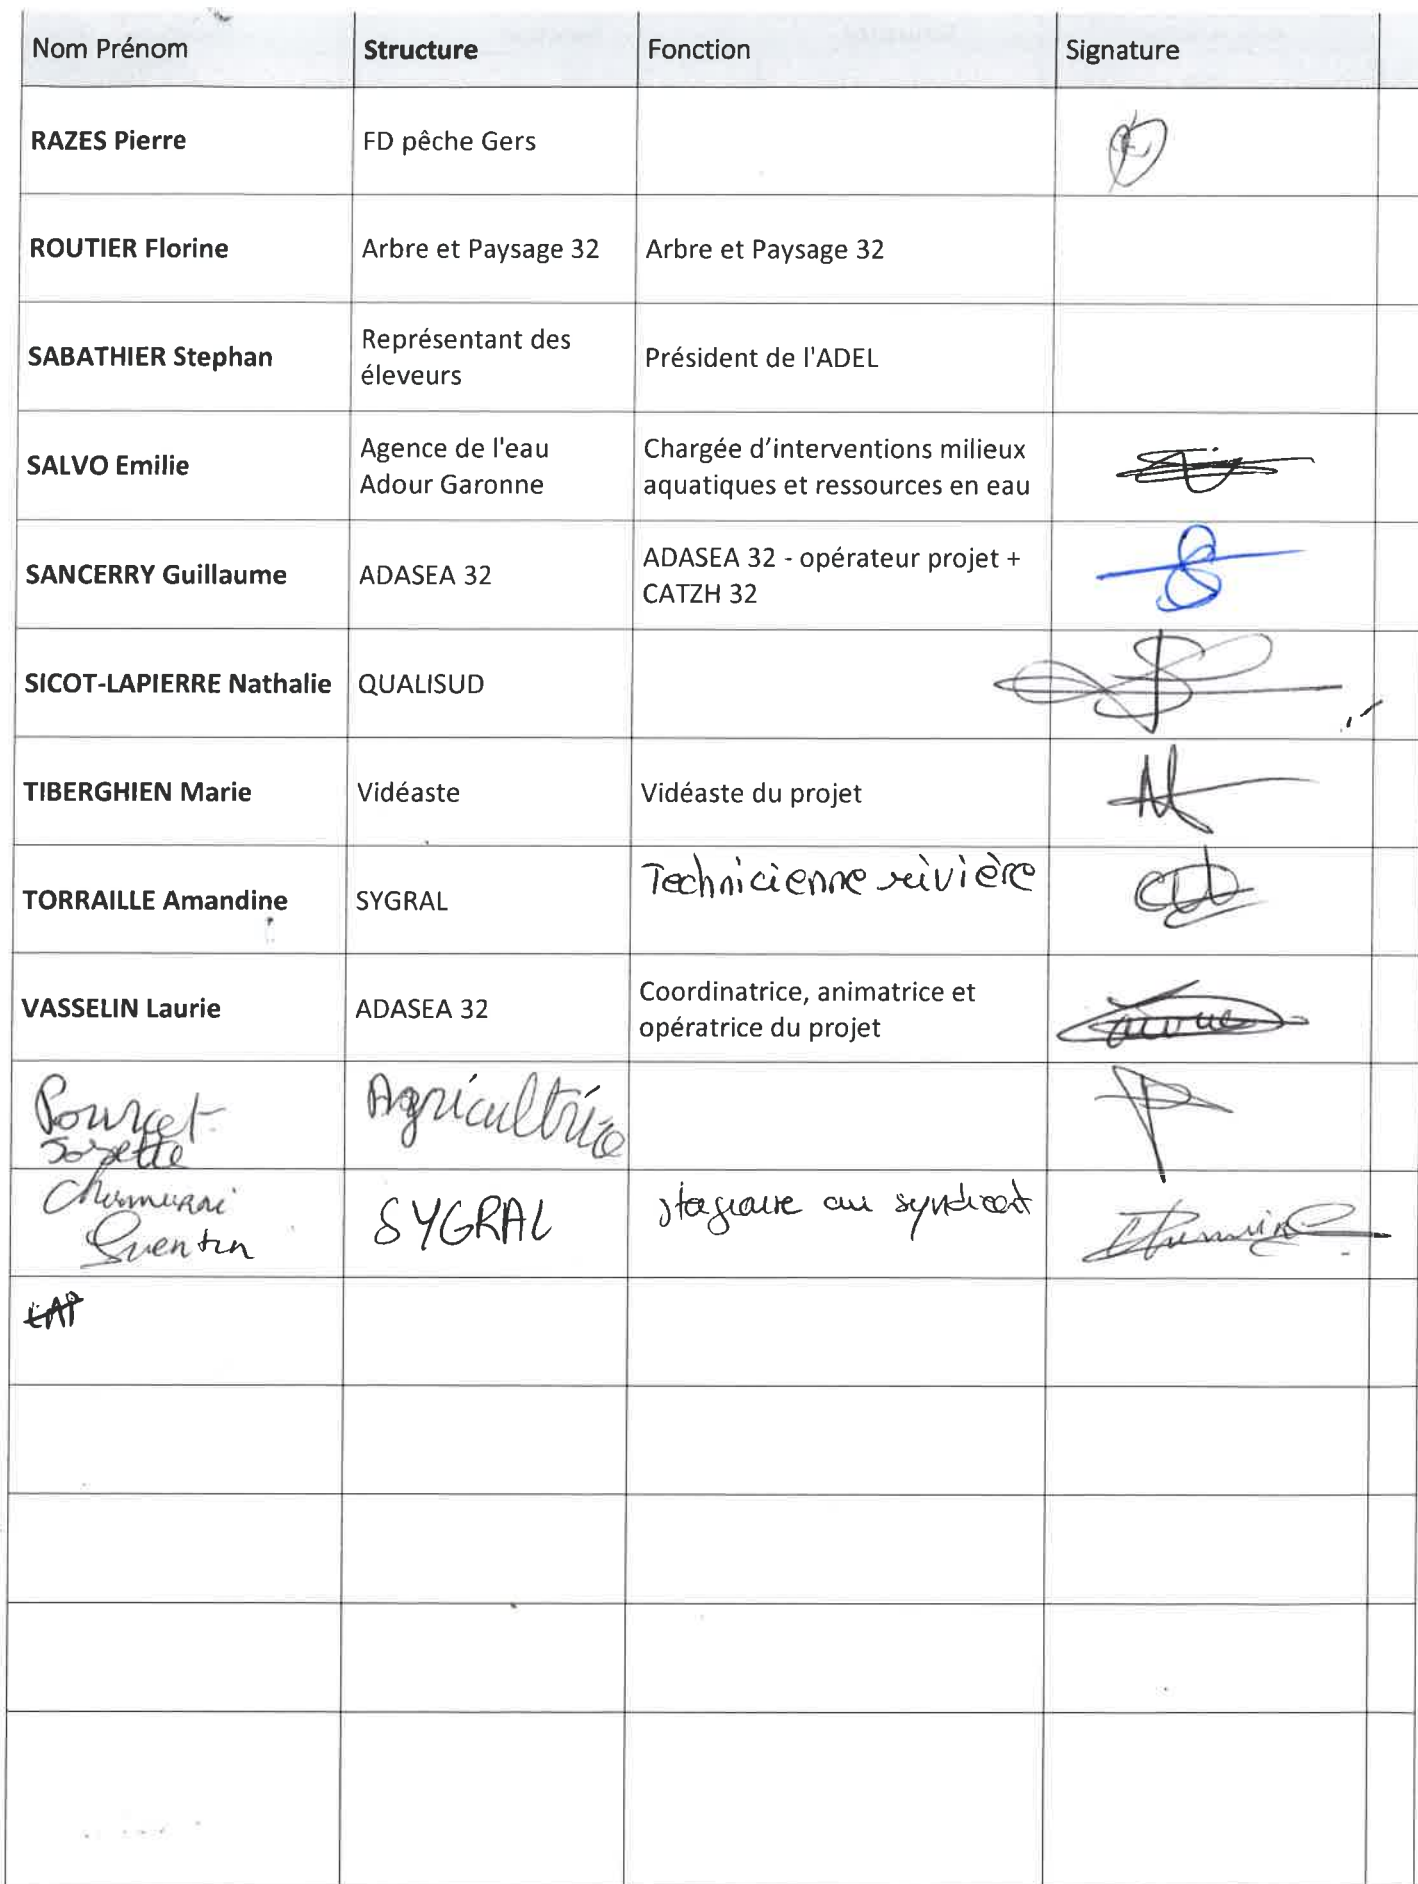 Nom Prénom Structure Fonction Signature
RAZES Pierre FD pêche Gers
ROUTIER Florine Arbre et Paysage 32 Arbre et Paysage 32
SABATHIER Stephan Représentant des
éleveurs Président de l'ADEL
SALVO Emilie Agence de l'eau
Adour Garonne Chargée d'interventions milieux
aquatiques et ressources en eau
SANCERRY Guillaume ADASEA 32 ADASEA 32 - opérateur projet +
CATZH 32
SICOT-LAPIERRE Nathalie QUALISUD
TIBERGHIEN Marie Vidéaste Vidéaste du projet
TORRAILLE Amandine SYGRAL Technicienne rivière
VASSELIN Laurie ADASEA 32 Coordinatrice, animatrice et
opératrice du projet
Pourcet
Josette Agricultrice
Quentin SYGRAL stagiaire au syndicat
LAP